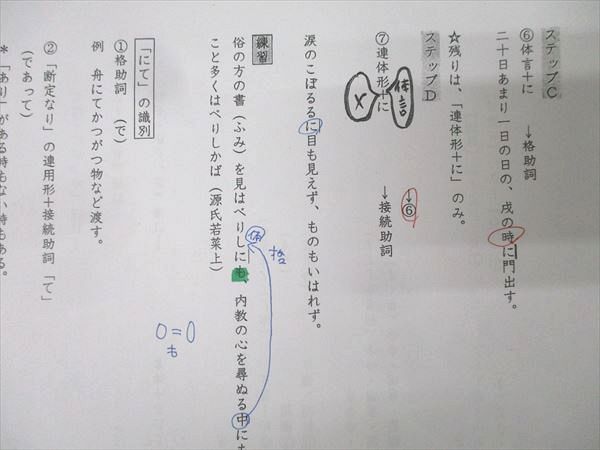 ステップC
⑥体言+に →格助詞
二十日あまり一日の日の、戌の時に門出す。
☆残りは、「連体形+に」のみ。
ステップD
体言
⑦連体形+に →接続助詞
×
→⑥
涙のこぼるるに目も見えず、ものもいはれず。
練習
俗の方の書(ふみ)を見はべりしにも、内教の心を尋ぬる中に
体
こと多くはべりしかば(源氏若菜上)
0=0
も
「にて」の識別
①格助詞 (で)
例 舟にてかつがつ物など渡す。
②「断定なり」の連用形+接続助詞「て」
(であって)
*「あり」がある時もない時もある。